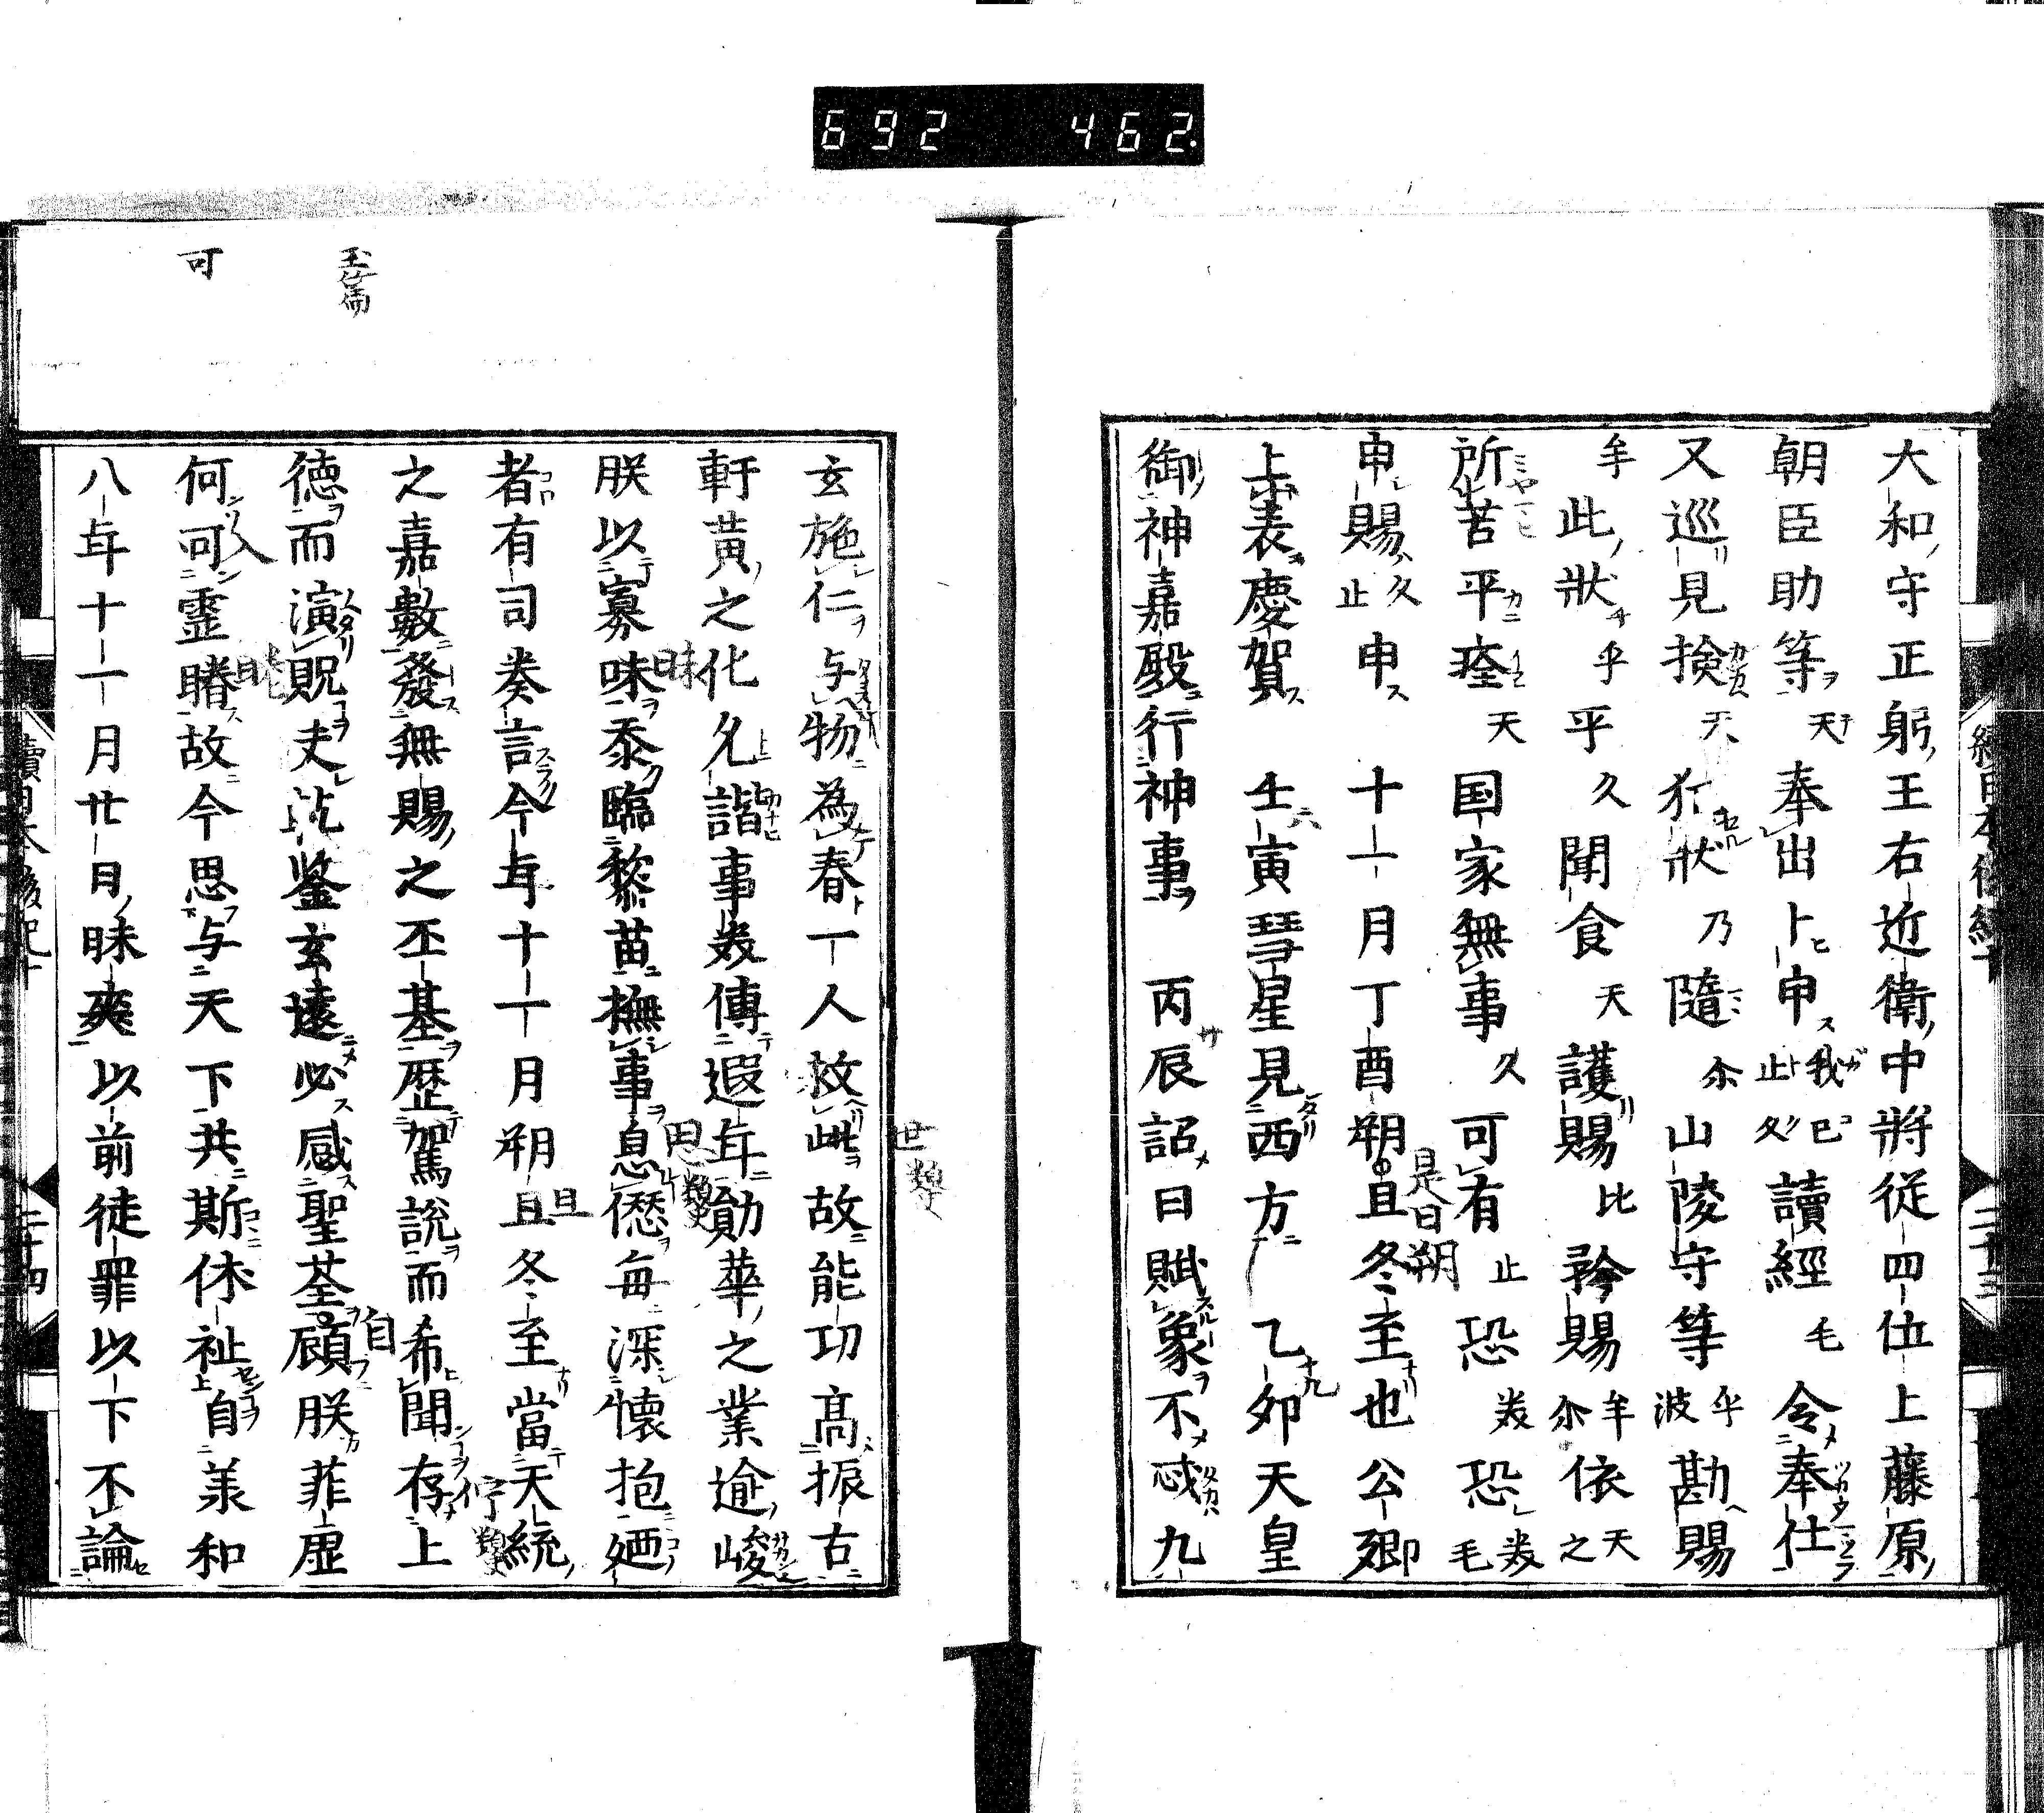 692 462.
大和守正躬王右近衛中將從四位上藤原
朝臣助等天奉出卜申我止巳久讀經毛令奉仕
又巡見撿天犯狀乃隨尓山陵守等乎波勘賜
牟此狀乎平久聞食天護賜比矜賜牟尓依天之
所苦平痊天国家無事久可有止恐美恐美毛
申賜久止申 十一月丁酉朔且冬至也公卿
是日朔
上表慶賀 壬寅彗星見西方 乙夘天皇
御神嘉殿行神事 丙辰詔曰賦象不忒九
玄施仁与物為春一人救此故能功高振古
世類
軒黃之化允諧事美傳遐年勛華之業逾峻
朕以寡味忝臨黎苗撫事息僁每深懷抱廼
昧
思類史
者有司奏言今年十一月朔且冬至當天統
旦
之嘉數發無賜之丕基歷駕說而希聞存上
佇類史
德而演貺夫乾鑒玄遠必感聖荃顧朕菲虛
自
何可霊瞻故今思与天下共斯休祉自羕和
八年十一月廿日昧爽以前徒罪以下不論
可
二十三
二十四